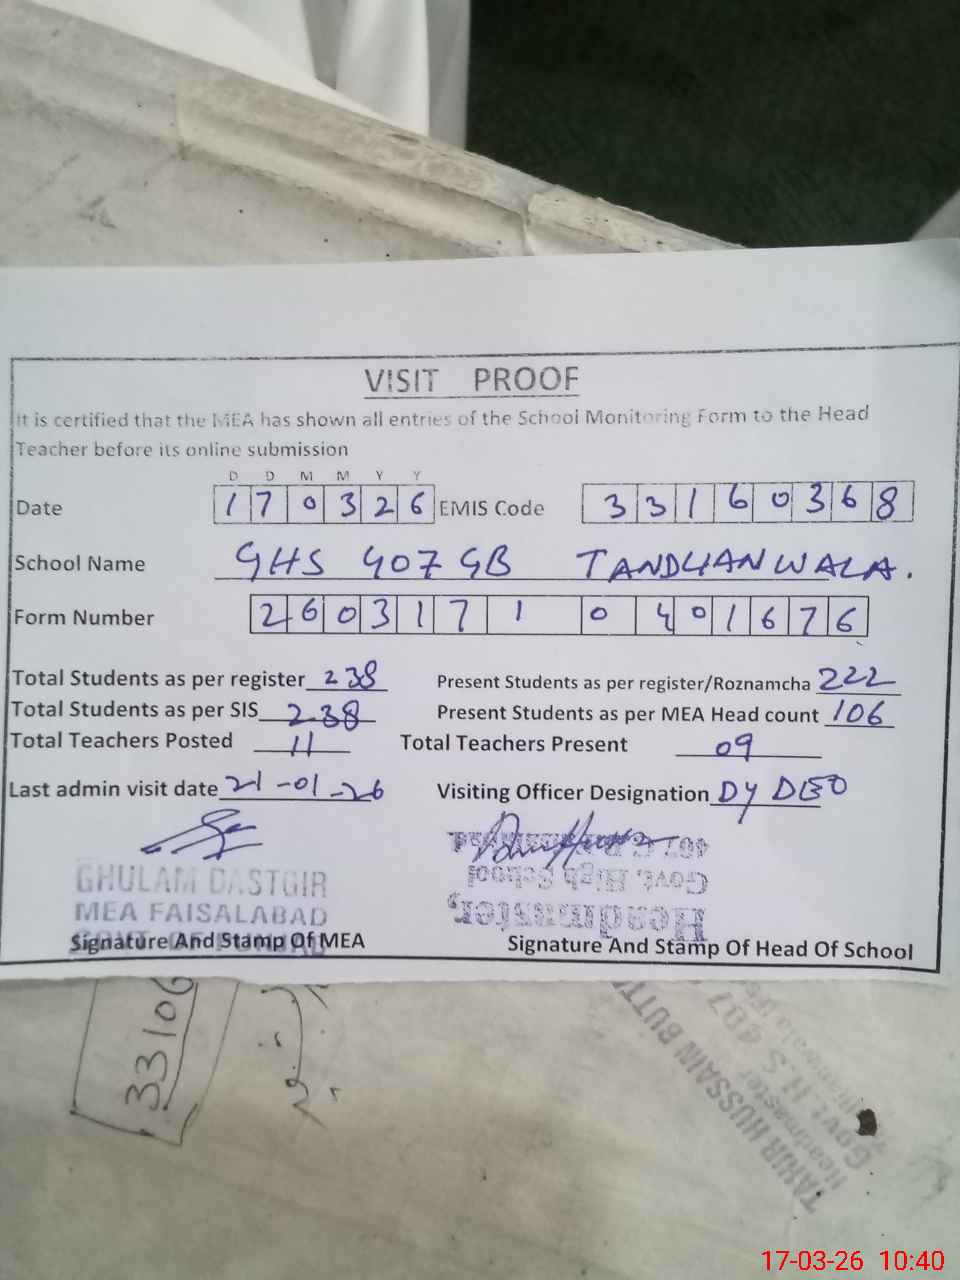 VISIT PROOF
It is certified that the MEA has shown all entries of the School Monitoring Form to the Head
Teacher before its online submission
D D M M Y Y
Date 1 7 0 3 2 6 EMIS Code 3 3 1 6 0 3 6 8
School Name GHS 407 GB TANDLIANWALA.
Form Number 2 6 0 3 1 7 1 0 4 0 1 6 7 6
Total Students as per register 238 Present Students as per register/Roznamcha 222
Total Students as per SIS 238 Present Students as per MEA Head count 106
Total Teachers Posted 11 Total Teachers Present 09
Last admin visit date 21-01-26 Visiting Officer Designation DY DEO
GHULAM DASTGIR
MEA FAISALABAD
Signature And Stamp Of MEA
Headmaster,
Govt. High School
407 G.B.
Signature And Stamp Of Head Of School
33106
TAHIR HUSSAIN BUTT
Headmaster
Govt. H.S 407
17-03-26 10:40